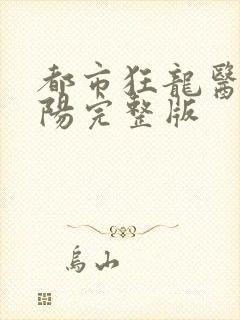 都市狂龍醫
陽完整版
烏山